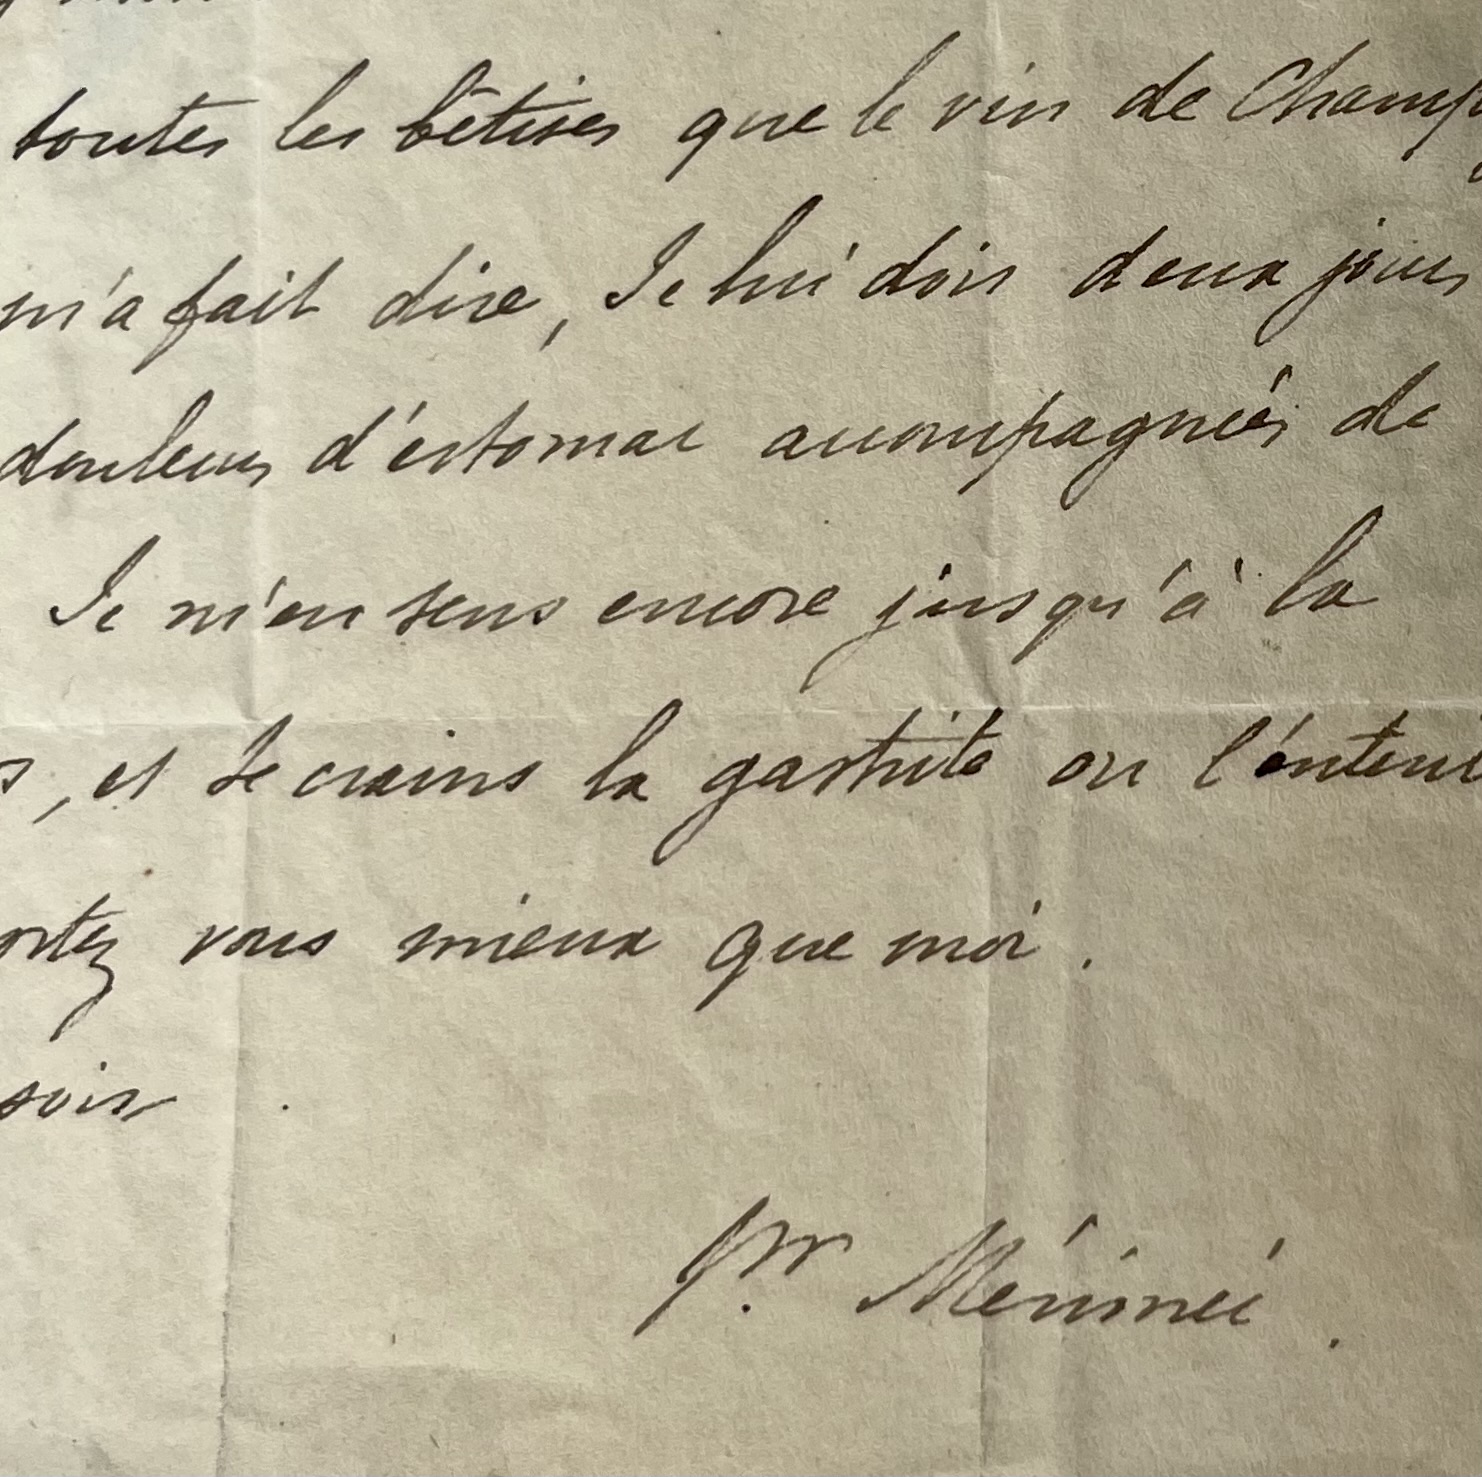 toutes les bêtises que le vin de Champ
m'a fait dire, Je lui dois deux jours
douleurs d'estomac accompagnées de
Je m'en sens encore jusqu'à la
s, et Je crains la gastrite ou l'enteri
ortez vous mieux que moi.
soir
Pr. Mérimée.